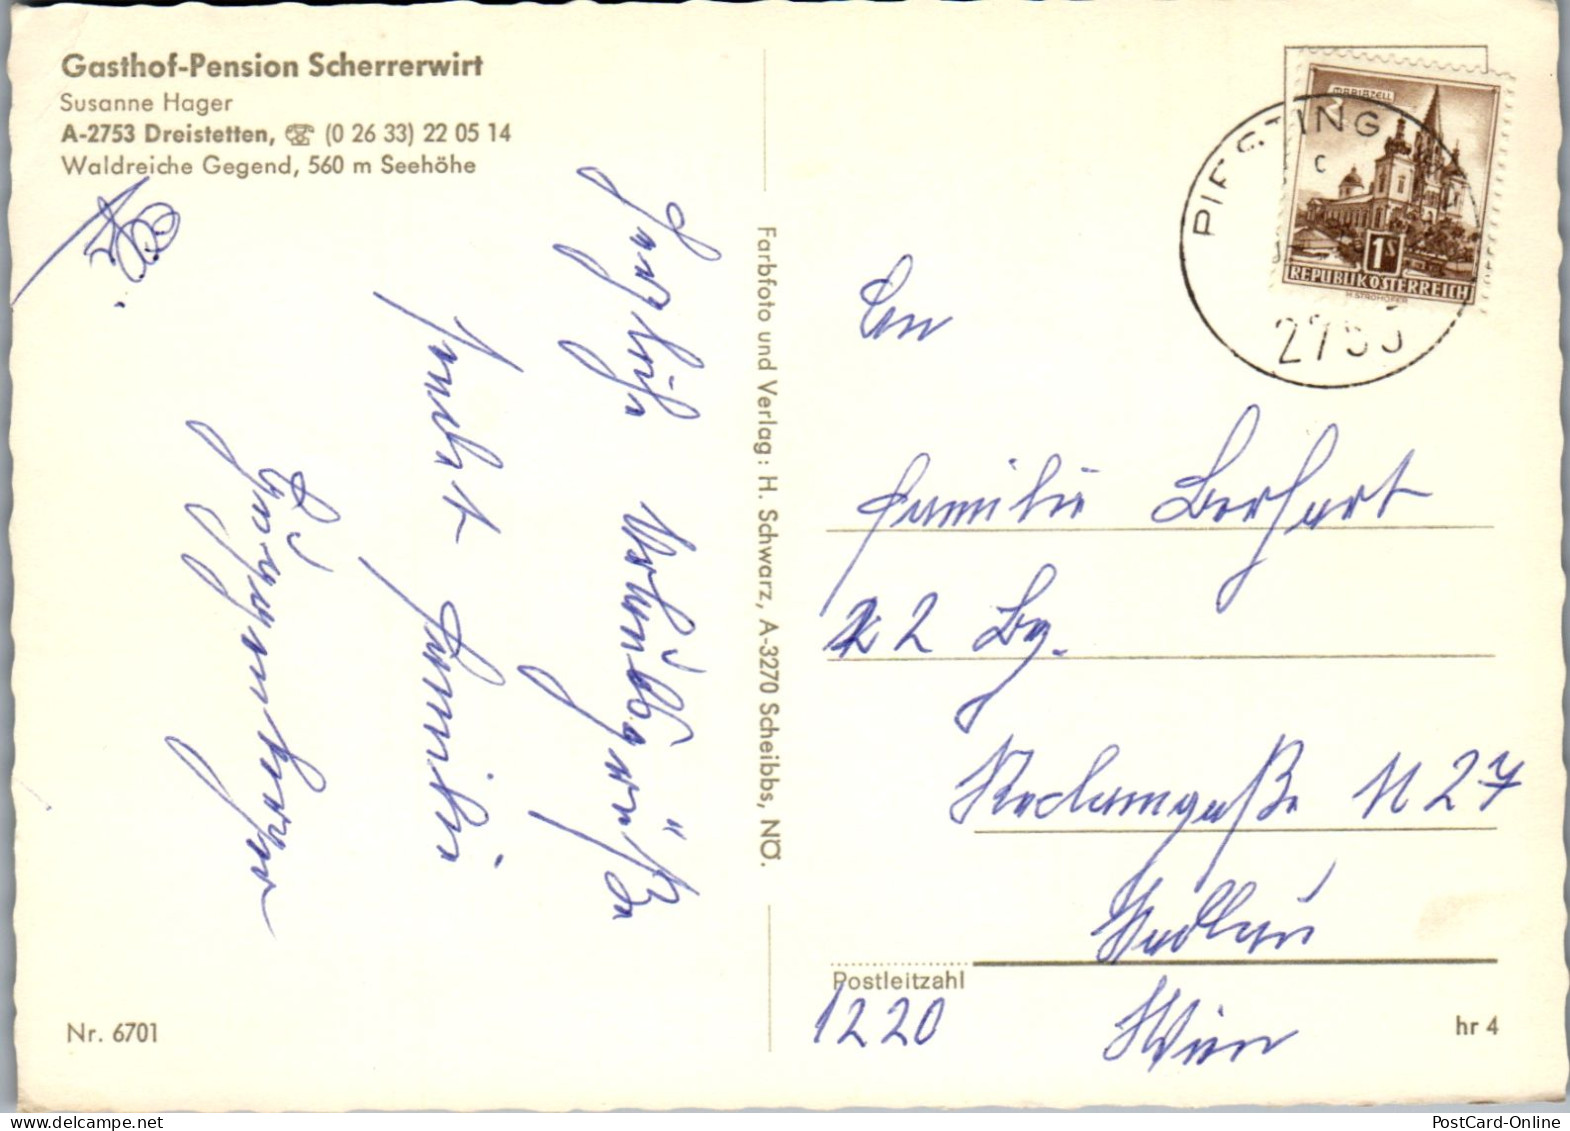 Gasthof-Pension Scherrerwirt
Susanne Hager
A-2753 Dreistetten, ☏ (0 26 33) 22 05 14
Waldreiche Gegend, 560 m Seehöhe
Herzliche Urlaubsgrüße
Familie
Farbfoto und Verlag: H. Schwarz, A-3270 Scheibbs, NÖ.
MARIAZELL
1S
REPUBLIK ÖSTERREICH
H. STROHOFER
PIESTING
C
2753
An
Familie
22 Bez.
N 27
Wien
Postleitzahl
1220
Nr. 6701
hr 4
PostCard-Online